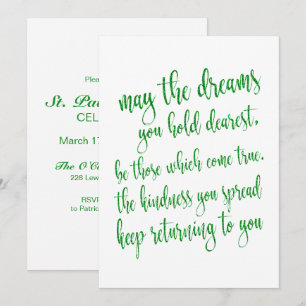 Please
St. Pa
CEL
March 17
The O'C
228 Lew
RSVP
to Patric
may the dreams
you hold dearest,
be those which come true.
the kindness you spread
keep returning to you